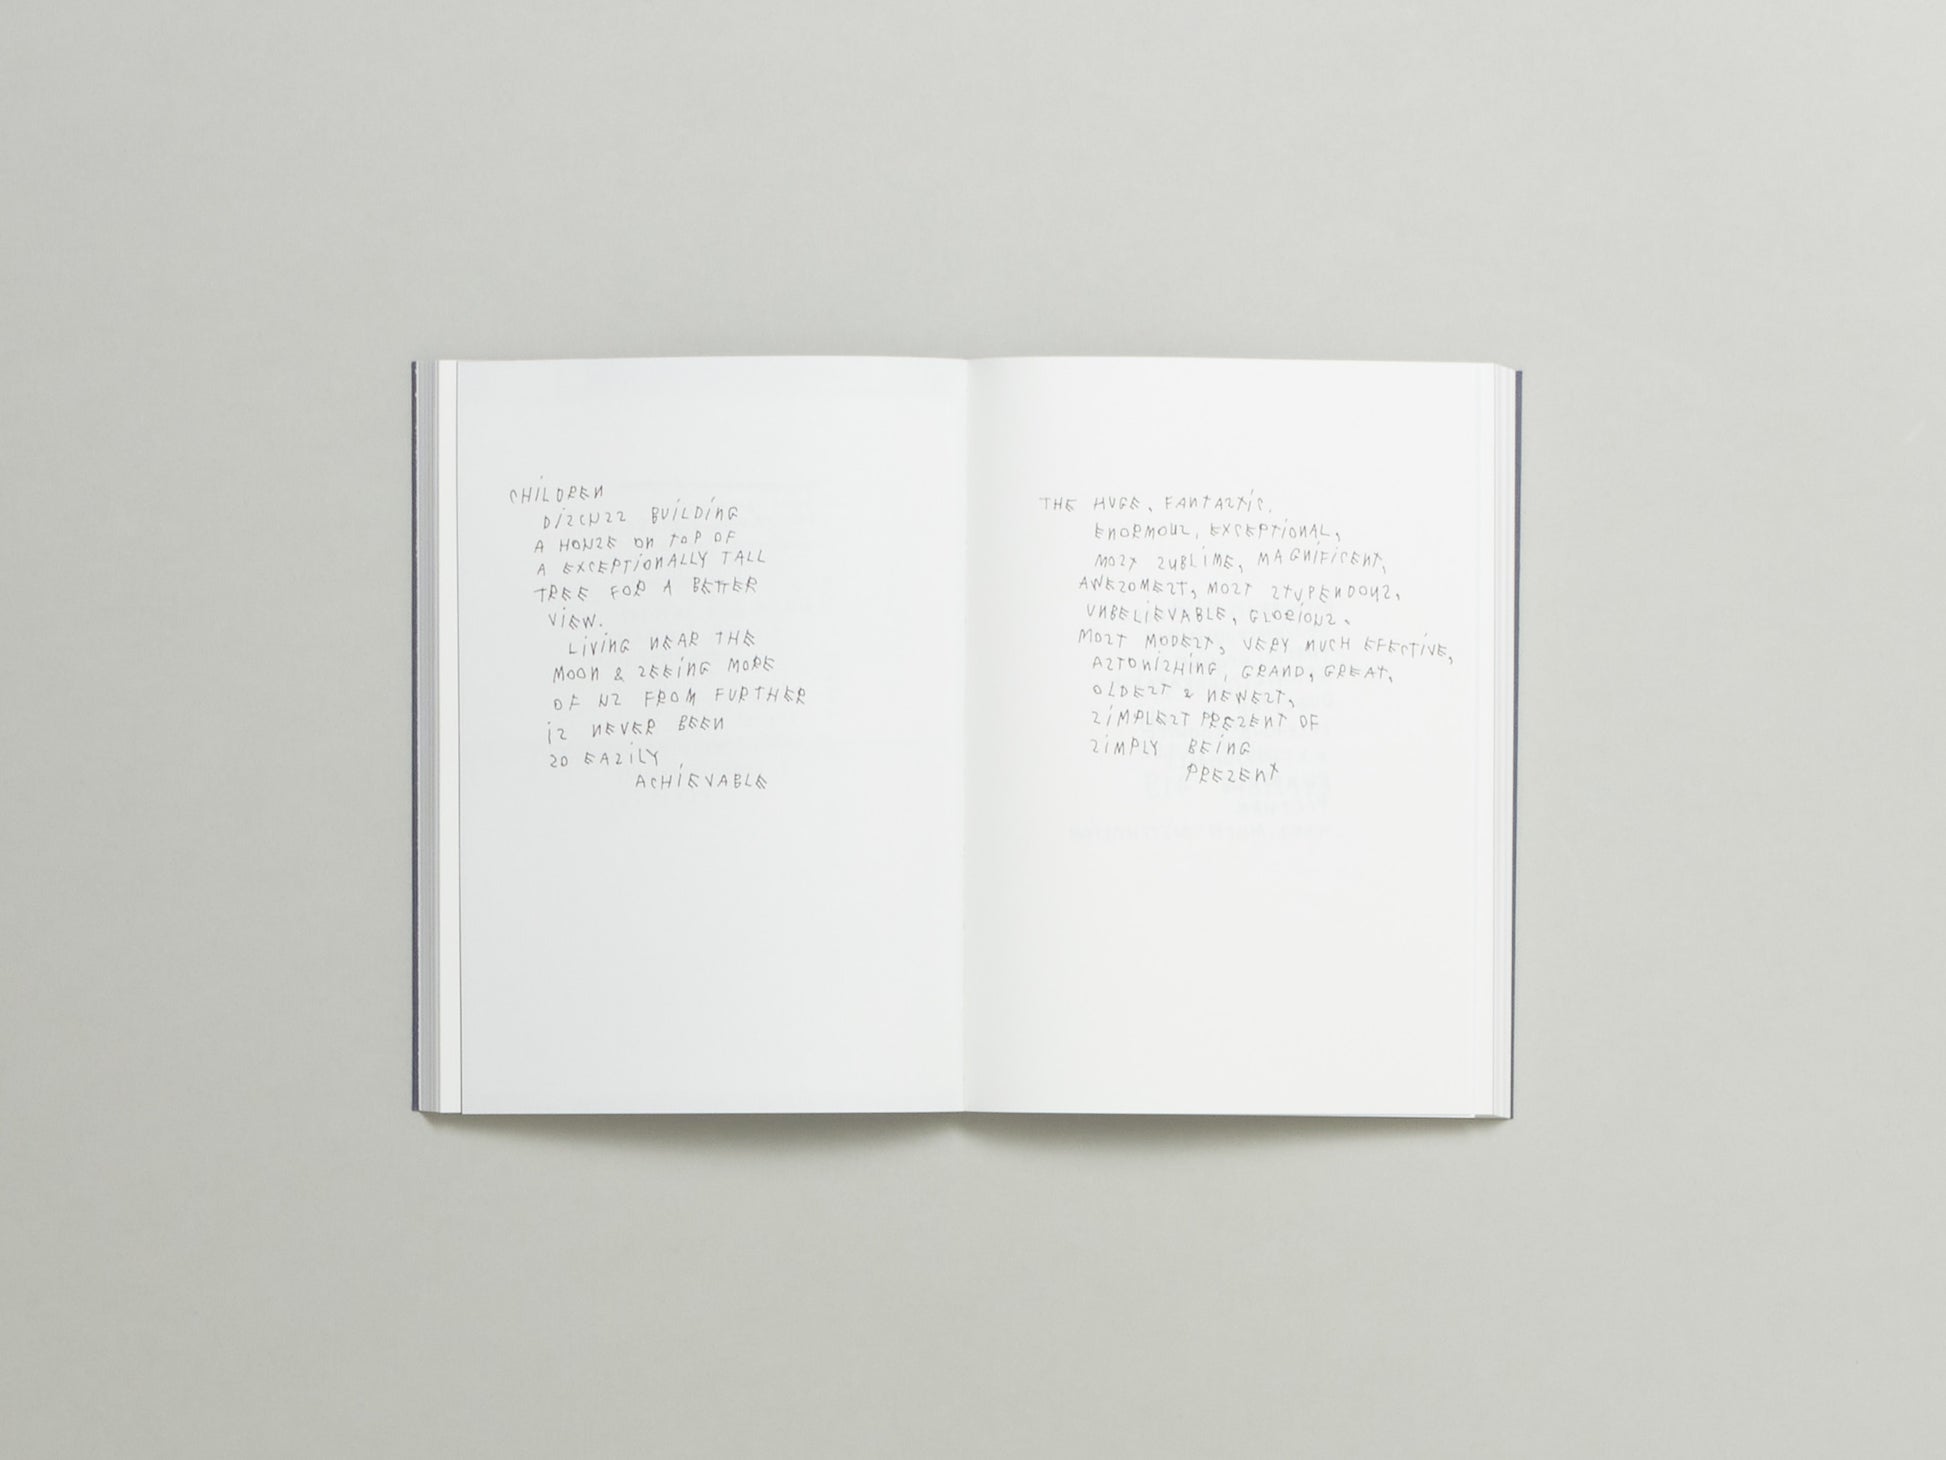 CHILDREN
DISCUSS BUILDING
A HOUSE ON TOP OF
A EXCEPTIONALLY TALL
TREE FOR A BETTER
VIEW.
LIVING NEAR THE
MOON & SEEING MORE
OF US FROM FURTHER
IS NEVER BEEN
SO EASILY
ACHIEVABLE
THE HUGE, FANTASTIC,
ENORMOUS, EXCEPTIONAL,
MOST SUBLIME, MAGNIFICENT,
AWESOMEST, MOST STUPENDOUS,
UNBELIEVABLE, GLORIOUS,
MOST MODEST, VERY MUCH EFECTIVE,
ASTONISHING, GRAND, GREAT,
OLDEST & NEWEST,
SIMPLEST PRESENT OF
SIMPLY BEING
PRESENT